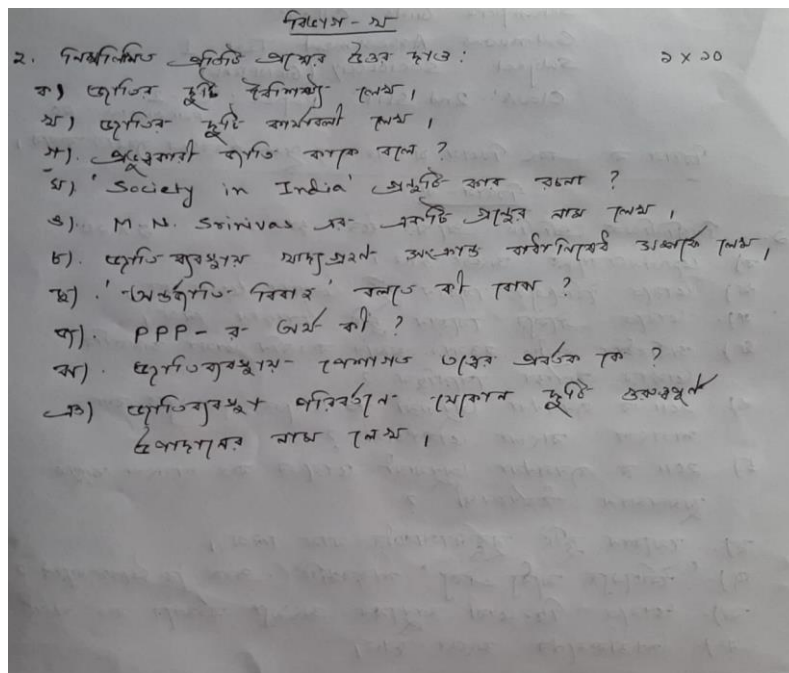 বিভাগ - খ
২. নিম্নলিখিত প্রতিটি প্রশ্নের উত্তর দাও : ১ × ১০
ক) জাতির দুটি বৈশিষ্ট্য লেখ।
খ) জাতির দুটি কার্যাবলী লেখ।
গ). প্রভুত্বকারী জাতি কাকে বলে ?
ঘ) 'Society in India' গ্রন্থটি কার রচনা ?
ঙ). M. N. Srinivas এর একটি গ্রন্থের নাম লেখ।
চ). জাতি ব্যবস্থায় খাদ্য গ্রহণ সংক্রান্ত বাধানিষেধ সম্পর্কে লেখ।
ছ). 'অন্তর্জাতি বিবাহ' বলতে কী বোঝ ?
জ). PPP - র অর্থ কী ?
ঝ). জাতিব্যবস্থায় পেশাগত তত্ত্বের প্রবর্তক কে ?
ঞ) জাতিব্যবস্থা পরিবর্তনে যেকোন দুটি গুরুত্বপূর্ণ
উপাদানের নাম লেখ।